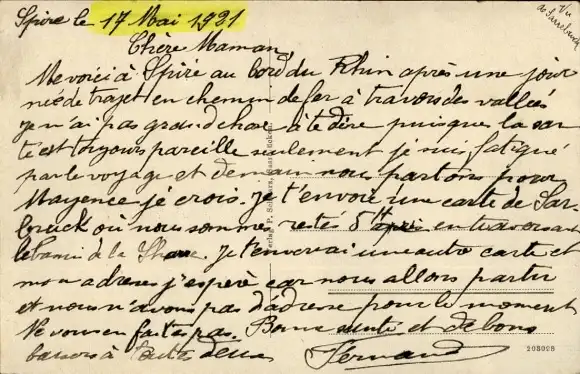 Spire le 17 Mai 1921
Vu
de Sarrebruck
Chère Maman
Me voici à Spire au bord du Rhin après une jour
née de trajet en chemin de fer à travers des vallées
je n'ai pas grand chose à te dire puisque la san
té est toujours pareille seulement je suis fatigué
par le voyage et demain nous partons pour
Mayence je crois. Je t'envoie une carte de Sar
bruck où nous sommes restés 5 H en traversant
le bassin de la Sarre. Je t'enverrai une autre carte et
mon adresse j'espère car nous allons partir
et nous n'avons pas d'adresse pour le moment
Ne vous en faites pas. Bonne santé et de bons
baisers à toutes deux
Fernand
203028